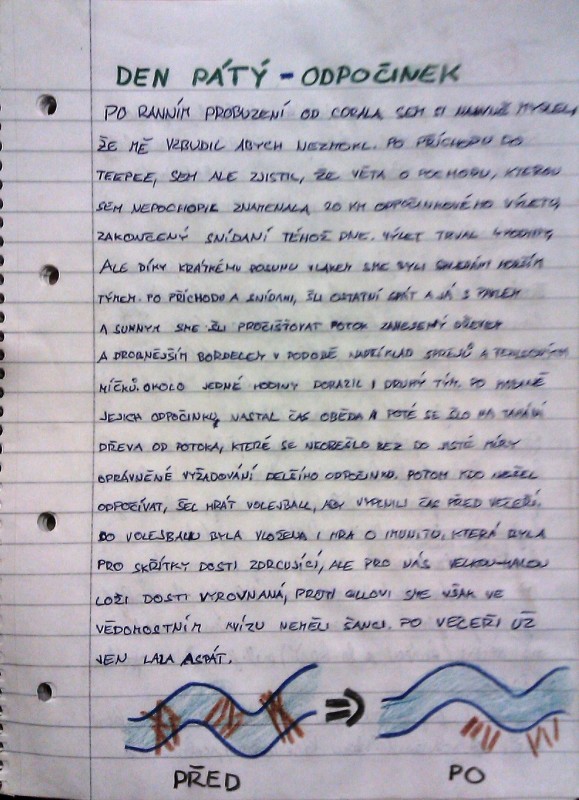 DEN PÁTÝ - ODPOČINEK
PO RANNÍM PROBUZENÍ OD SEM SI MYSLEL,
ŽE MĚ VZBUDIL ABYCH NEZMOKL. PO PŘÍCHODU DO
TEEPEE, SEM ALE ZJISTIL, ŽE VĚTA O POCHODU, KTEROU
SEM NEPOCHOPIL ZNAMENALA 20 KM ODPOČINKOVÉHO VÝLETU,
ZAKONČENÝ SNÍDANÍ TÉHOŽ DNE. VÝLET TRVAL 4 HODINY,
ALE DÍKY KRÁTKÉMU POSUNU VLAKEM SME BYLI
TÝMEM. PO PŘÍCHODU A SNÍDANI, ŠLI OSTATNÍ SPÁT A JÁ S
A SUNNYM SME ŠLI PROČIŠŤOVAT POTOK ZANESENÝ DŘEVEM
A DROBNĚJŠÍM BORDELEM V PODOBĚ NAPŘÍKLAD SPREJŮ A TENISOVÝCH
MÍČKŮ. OKOLO JEDNÉ HODINY DORAZIL I DRUHÝ TÝM. PO
JEJICH ODPOČINKU, NASTAL ČAS OBĚDA A POTÉ SE ŠLO NA TAHÁNÍ
DŘEVA OD POTOKA, KTERÉ SE NEOBEŠLO BEZ DO JISTÉ MÍRY
OPRÁVNĚNÉ VYŽADOVÁNÍ DELŠÍHO ODPOČINKU. POTOM KDO NEŠEL
ODPOČÍVAT, ŠEL HRÁT VOLEJBALL, ABY VYPLNILI ČAS PŘED VEČEŘÍ.
DO VOLEJBALU BYLA VLOŽENA I HRA O IMUNITU, KTERÁ BYLA
PRO SKŘÍTKY DOSTI ZDRCUJÍCÍ, ALE PRO NÁS VELKOU-MALOU
LOŽI DOSTI VYROVNANÁ, PROTI SME VŠAK VE
VĚDOMOSTNÍM KVÍZU NEMĚLI ŠANCI. PO VEČEŘI UŽ
JEN ASPÁT.
PŘED
PO